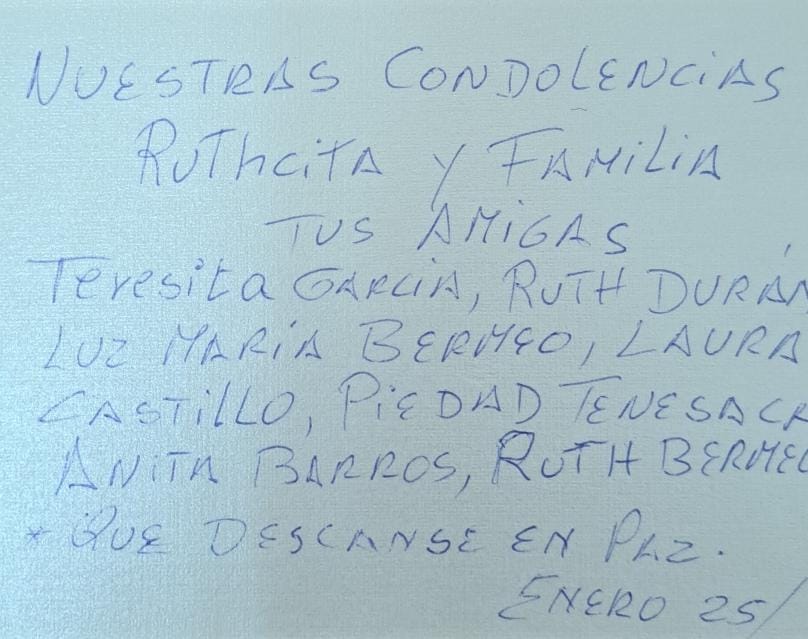 NUESTRAS CONDOLENCIAS
RUThCiTA Y FAMiLiA
TUS AMiGAS
Teresita GARCíA, RUTH DURÁN
LUZ MARíA BERMEO, LAURA
CASTiLLO, PiEDAD TENESACA
ANiTA BARROS, RUTH BERMEO
* QUE DESCANSE EN PAZ.
ENERO 25/